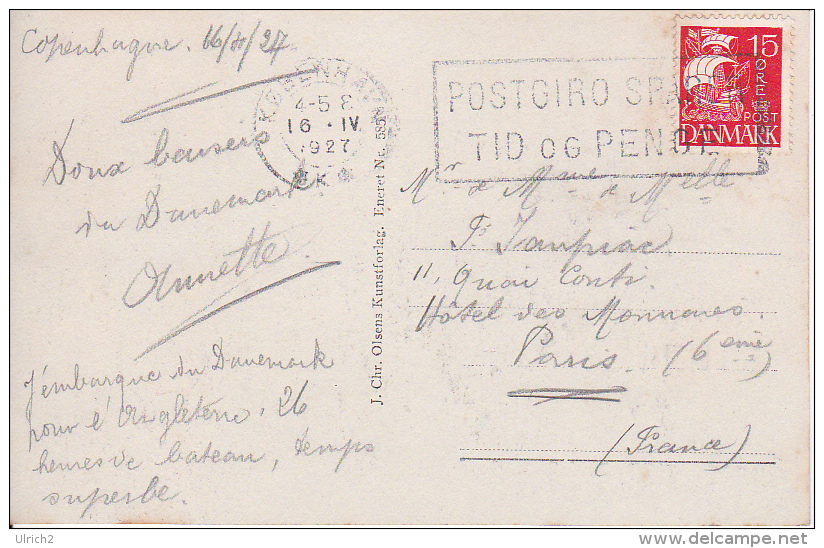 Copenhague. 16/4/27
Doux baisers
du Danemark
Annette
J'embarque du Danemark
pour l'Angleterre. 26
heures de bateau, temps
superbe.
KØBENHAVN
4-5 E
16 · IV
1927
K
POSTGIRO SPARER
TID OG PENGE
15
ØRE
POST
DANMARK
J. Chr. Olsens Kunstforlag. Eneret Nr. 585
Mr & Mme & Melle
F.
11, Quai Conti
Hôtel des Monnaies.
Paris. (6eme)
(France)
Ulrich2
delcampe.net